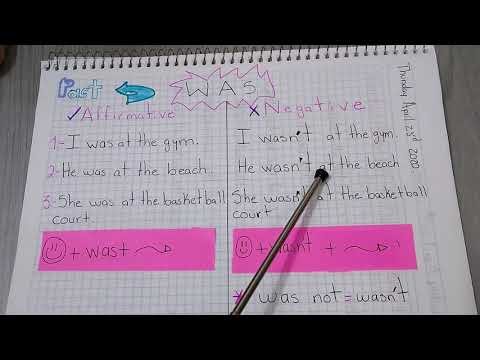 Past
WAS
Thursday April 23rd 2020
✓Affirmative
1- I was at the gym.
2- He was at the beach.
3- She was at the basketball
court.
+ was +
x Negative
I wasn't at the gym.
He wasn't at the beach
She wasn't at the basketball
court
+ wasnt +
* was not = wasn't